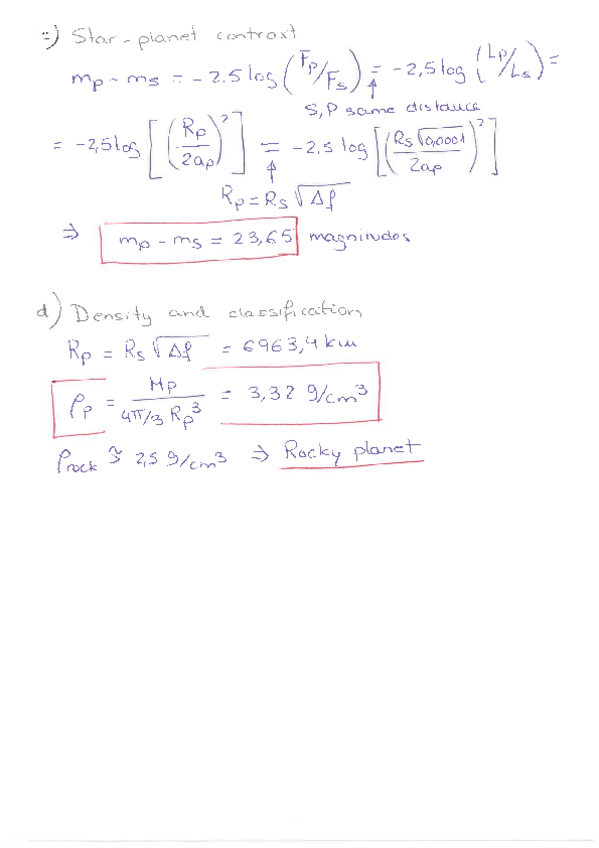 c) Star-planet contrast
mp - ms = -2.5 log (Fp/Fs) = -2,5 log (Lp/Ls) =
S, P same distance
= -2,5 log [(Rp/2ap)²] = -2.5 log [(Rs√0,0001/2ap)²]
Rp = Rs √Δf
⇒ mp - ms = 23,65 magnitudes
d) Density and classification
Rp = Rs √Δf = 6963,4 km
ρp = Mp / 4π/3 Rp³ = 3,32 g/cm³
ρrock ≅ 2,5 g/cm³ ⇒ Rocky planet